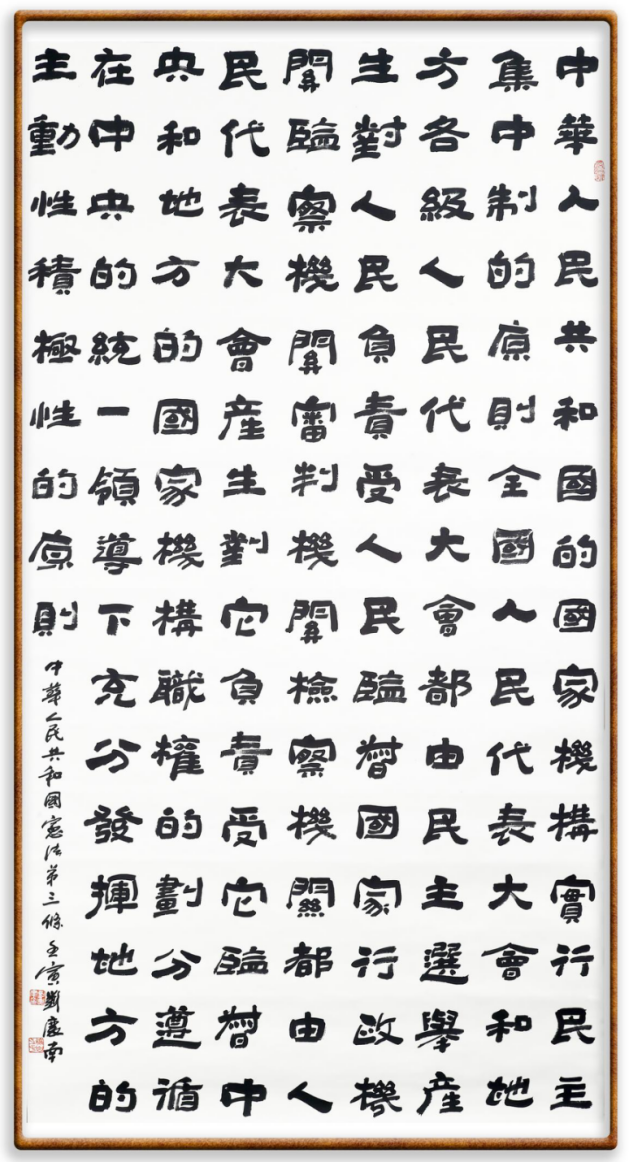 中華人民共和國的國家機構實行民主
集中制的原則全國人民代表大會和地
方各級人民代表大會都由民主選舉産
生對人民負責受人民監督國家行政機
關監察機關審判機關檢察機關都由人
民代表大會産生對它負責受它監督中
央和地方的國家機構職權的劃分遵循
在中央的統一領導下充分發揮地方的
主動性積極性的原則
中華人民共和國憲法第三條 壬寅 劉